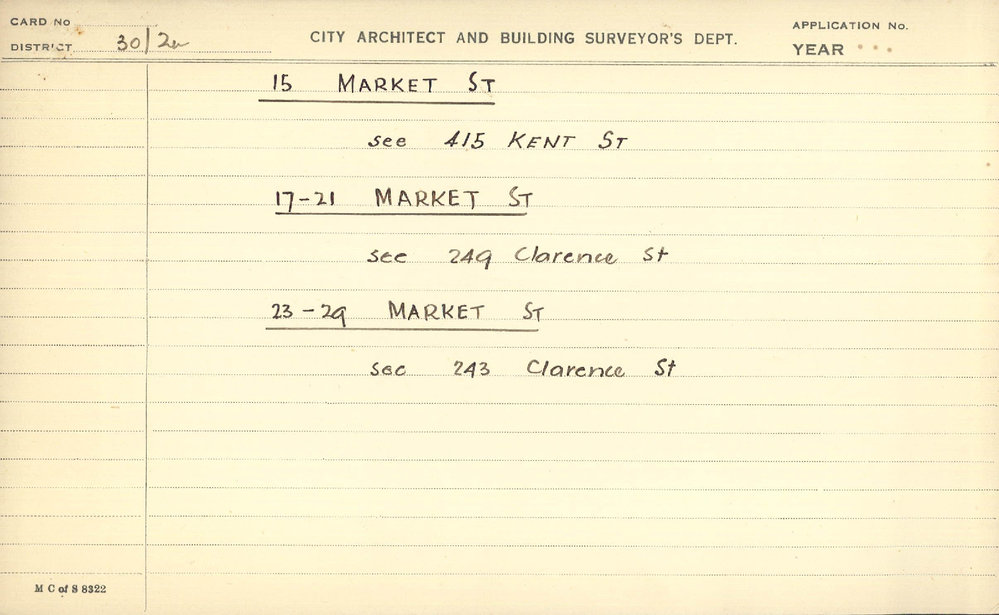 CARD No
DISTRICT 30/2
CITY ARCHITECT AND BUILDING SURVEYOR'S DEPT.
APPLICATION No.
YEAR
15 MARKET ST
see 415 KENT ST
17-21 MARKET ST
see 249 Clarence St
23-29 MARKET ST
see 243 Clarence St
M C of S 8322